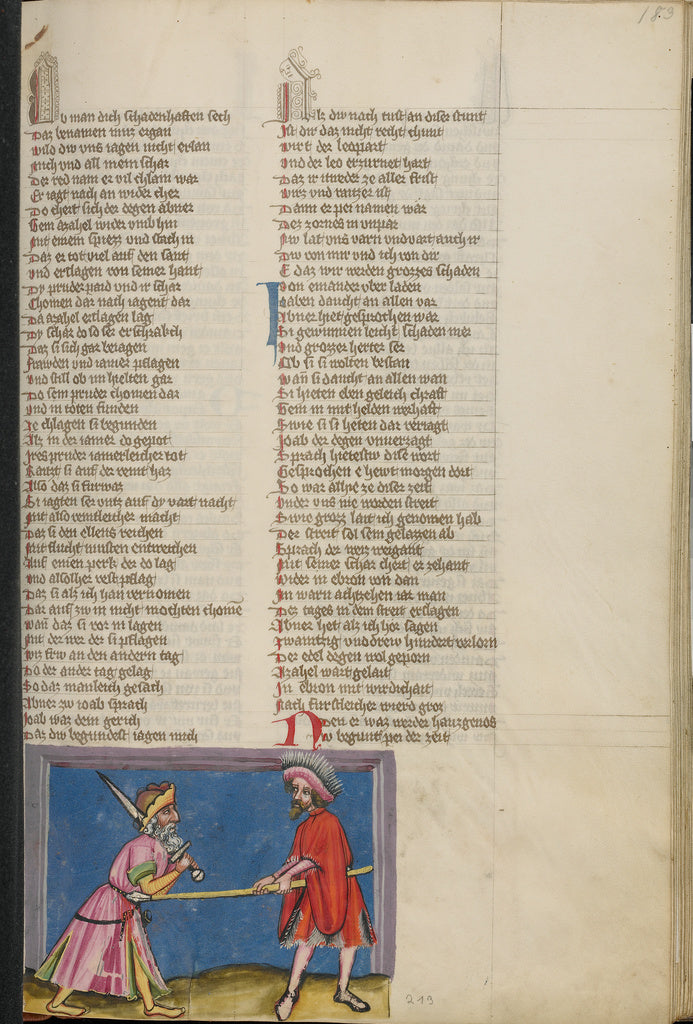 183
Ob man dich schadenhaften sech
Daz benamen muz ergan
Wild dw vns iagen nicht erlan
Mich vnd all mein schar
Der red nam er vil chlam war
Er iagt nach an wider cher
Do chert sich der degen abner
Gem azahel wider vmb hin
Mit einem spiezz vnd stach in
Daz er tot viel auf den sant
vnd erslagen von seiner hant
Dy pruder paid vnd ir schar
Chomen dar nach iagent dar
Da azahel erslagen lag
Dy schar do so ser erschrakch
Daz si sich gar bewagen
Frawden vnd iamer pflagen
vnd still ob im hielten gar
Do sein pruder chomen dar
vnd in toten funden
Ze chlagen si begunden
Als in der iamer do gepot
Ires pruder iamerleicher tot
si auf der veint haz
Also daz si furwaz
Si iagten ser vntz auf dy vart nacht
Mit also veintleicher macht
Daz si den ellens reichen
Mit flucht musten entweichen
Auf einen perk der do lag
vnd alsolher vest pflag
Daz si als ich han vernomen
Dar auf zw in nicht mochten chome
wan daz si vor in lagen
Mit der wer der si pflagen
vntz frw an den andern tag
Do der ander tag gelag
So daz manleich gesach
Abner zw ioab sprach
Ioab waz dein gerich
Daz dw begundest iagen mich
Als dw noch tust an diser stunt
Ist dir daz nicht recht chunt
wirt der leopart
vnd der leo erzurnet hart
Daz ir itweder ze aller frist
wirs vnd raitzer ist
Dann er pei namen war
Des zornes vnpar
Nw lat vns varn vnd vart auch ir
Dw von mir vnd ich von dir
E daz wir werden grozzes schaden
Von einander vber laden
Ioaben daucht an allen var
Abner hiet gesprochen war
Si gewunnen leicht schaden mer
vnd grozzer herter ser
Ob si si wolten bestan
wan si daucht an allen wan
Si hieten eben geleich chraft
Gein in mit helden werhaft
Swie si si heten dar veriagt
Ioab der degen vnuerzagt
Sprach hietestw dise wort
Gesprochen e hewt morgen dort
So war alhie ze diser zeit
vnder vns nie worden streit
Swie grozz laut ich genomen hab
Der streit sol sein gelazzen ab
Sprach der weigant
Mit seiner schar chert er zehant
wider in ebron von dan
Im warn achtzehen iar man
Des tages in dem streit erslagen
Abner het als ich hor sagen
zwaintzig vnd drew hundert verlorn
Der edel degen wol geporn
Azahel wart gelait
In ebron mit wirdichait
Nach furstleicher wierd groz
Nden er waz werder hauzgenos
begunt pei der zeit
213